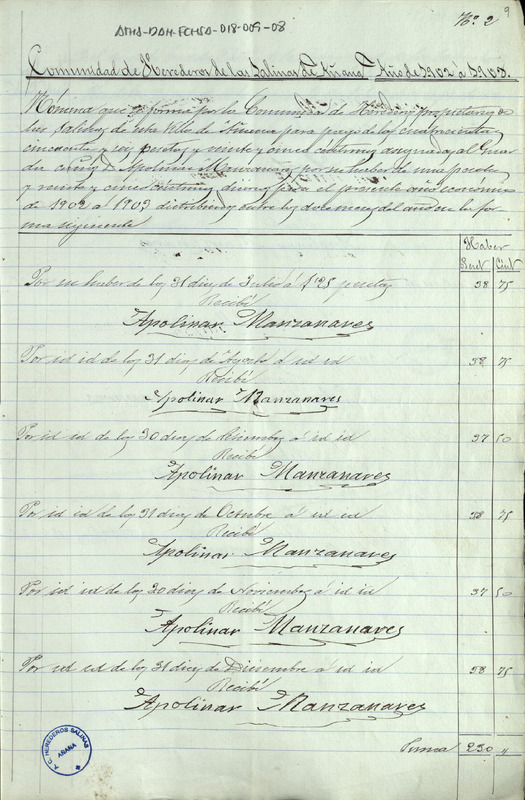 9
Nº 2
ATHA-DAH-FCHSA-018-009-08
Comunidad de Herederos de las Salinas de Añana Año de 1902 á 1903.
Nómina que se forma por la Comunidad de Herederos propietarios de
las Salinas de esta Villa de Añana para pago de las cuatrocientas
cincuenta y seis pesetas y veinte y cinco centimos asignadas al Guar
da D. Apolinar Manzanares por su haber de una peseta
y veinte y cinco centimos diarios para el presente año economico
de 1902 a 1903 distribuidas entre los doce meses del año en la for
ma siguiente
Haber
Cent
Por su haber de los 31 dias de Julio á 1'25 pesetas 38 75
Recibí
Apolinar Manzanares
Por id id de los 31 dias de Agosto á id id 38 75
Recibí
Apolinar Manzanares
Por id id de los 30 dias de á id id 37 50
Recibí
Apolinar Manzanares
Por id id de los 31 dias de Octubre á id id 38 75
Recibí
Apolinar Manzanares
Por id id de los 30 dias de Noviembre á id id 37 50
Recibí
Apolinar Manzanares
Por id id de los 31 dias de Diciembre á id id 38 75
Recibí
Apolinar Manzanares
Suma 230 "
HEREDEROS SALINAS
AÑANA